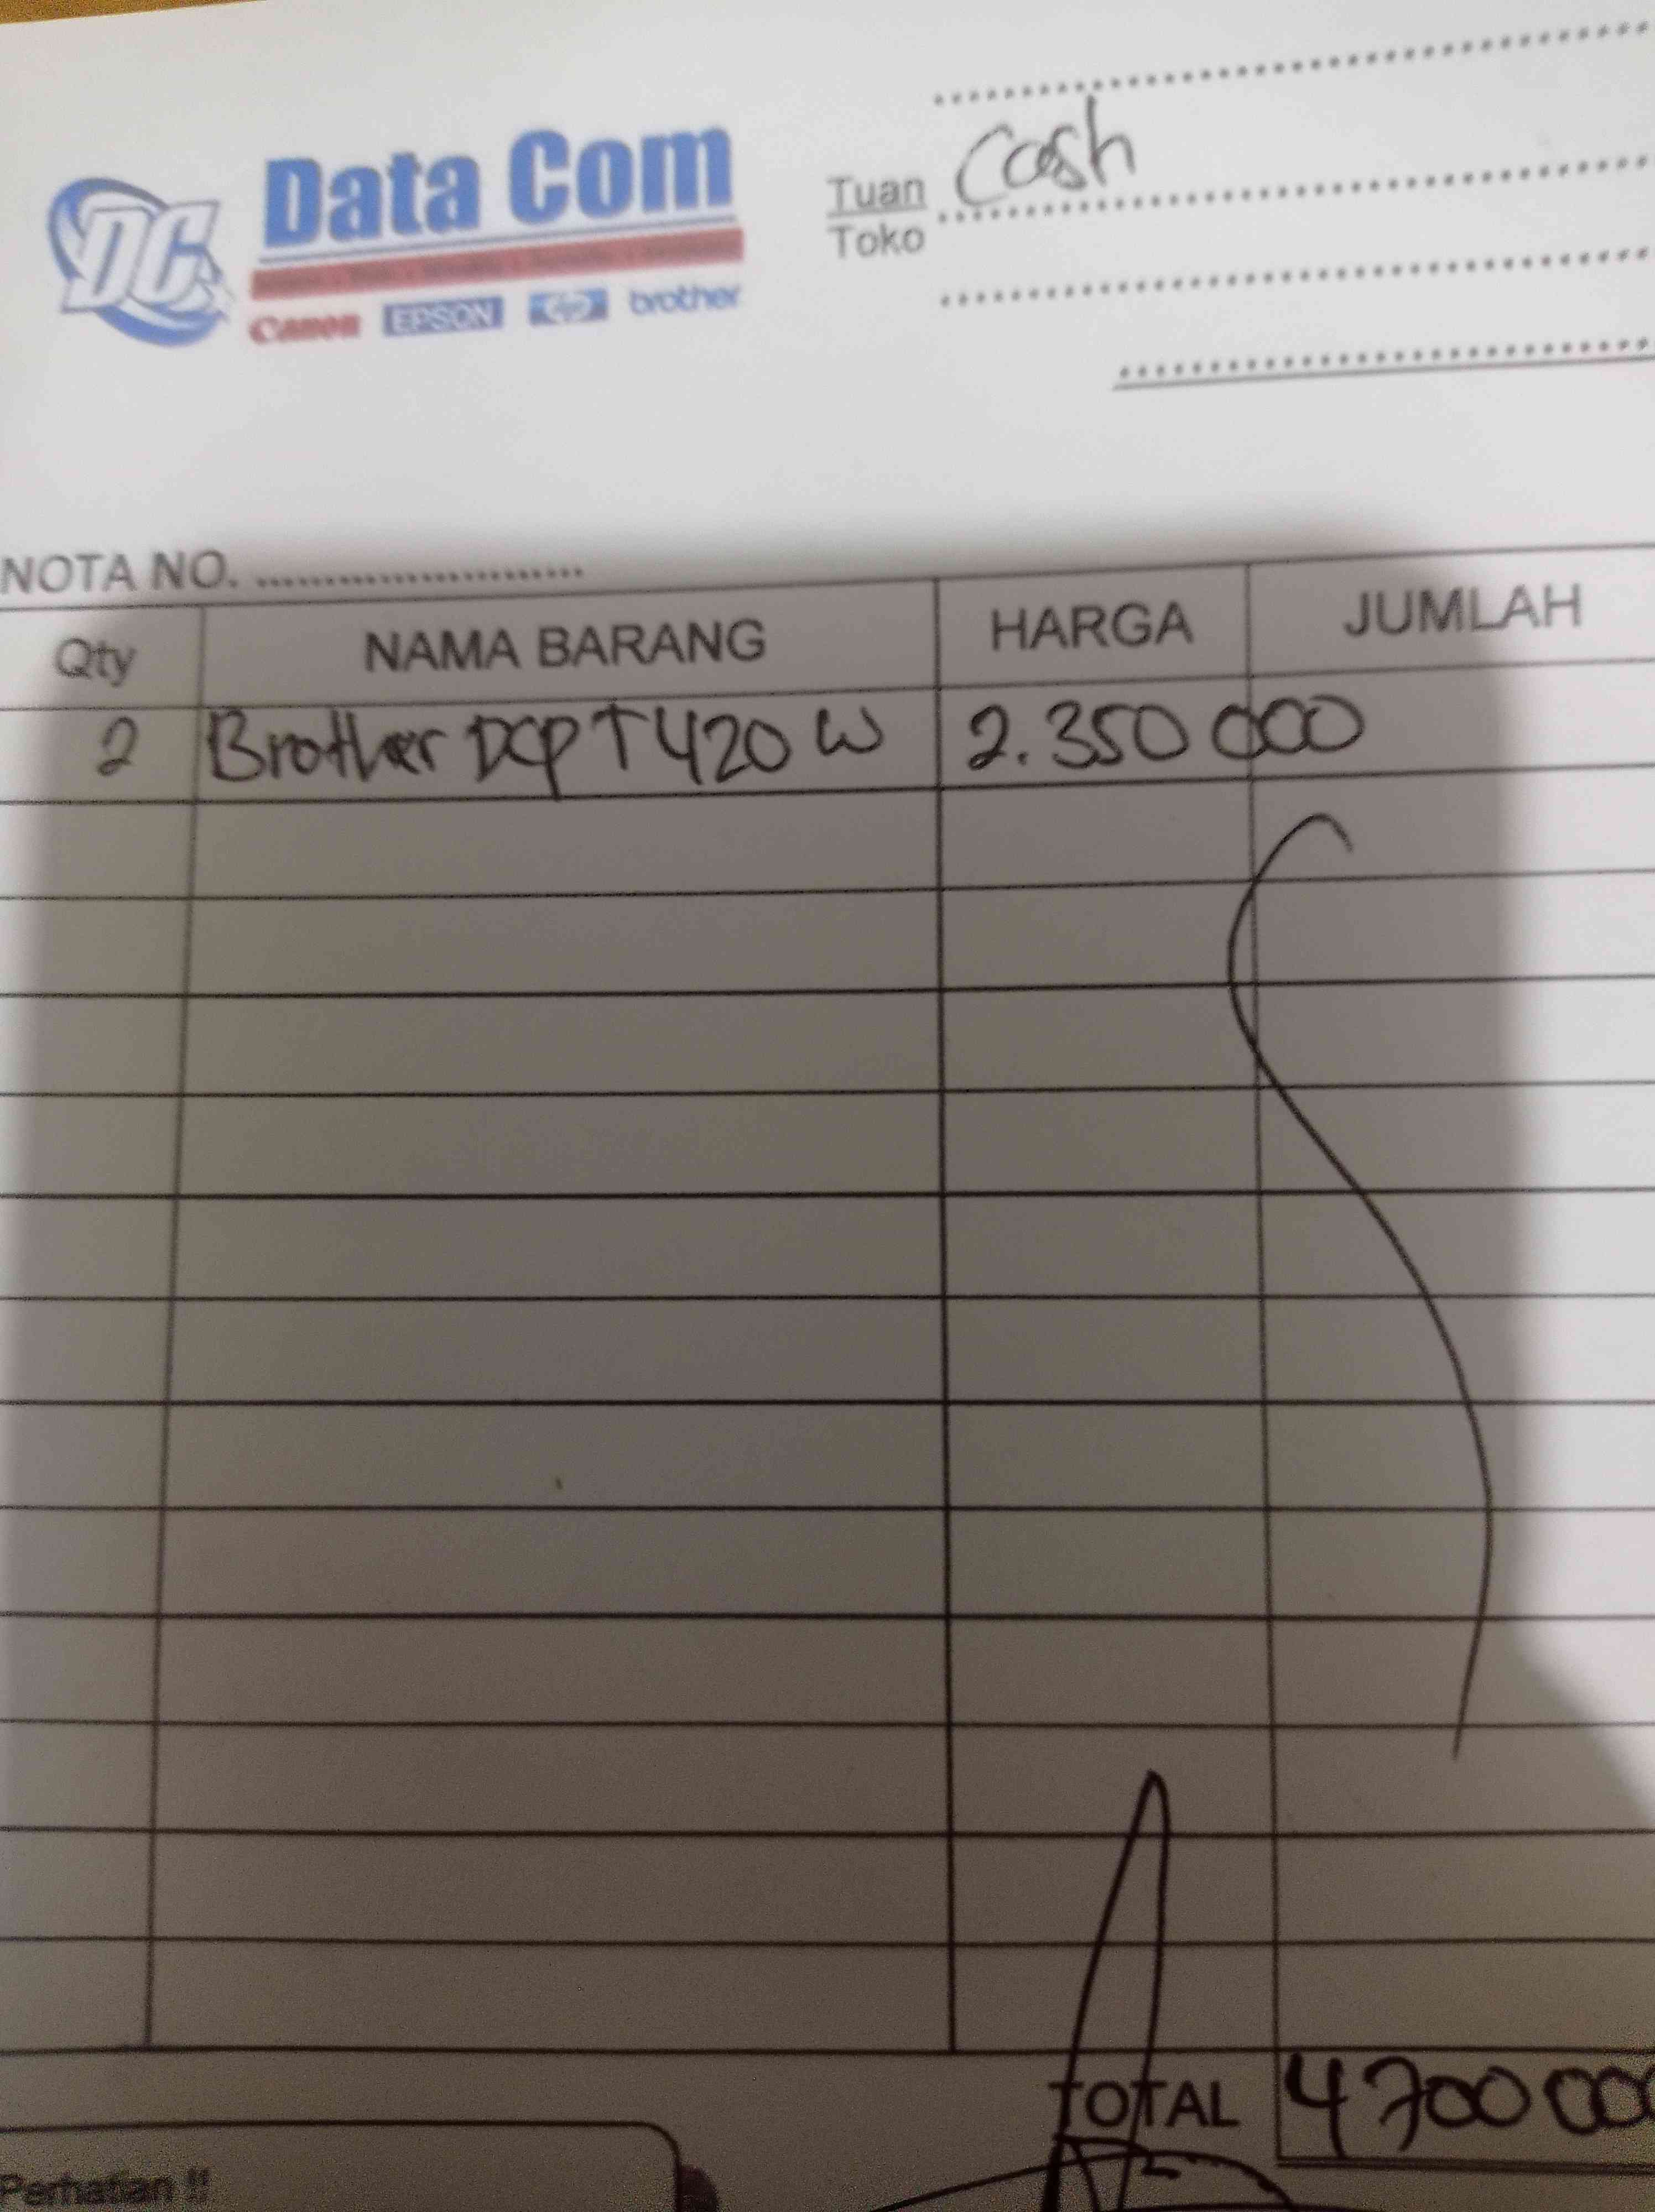 Data Com
DC
Canon EPSON hp brother
Tuan Cash
Toko
NOTA NO.
Qty NAMA BARANG HARGA JUMLAH
2 Brother DCP T420 W 2.350 000
TOTAL 4700 000
Perhatian !!